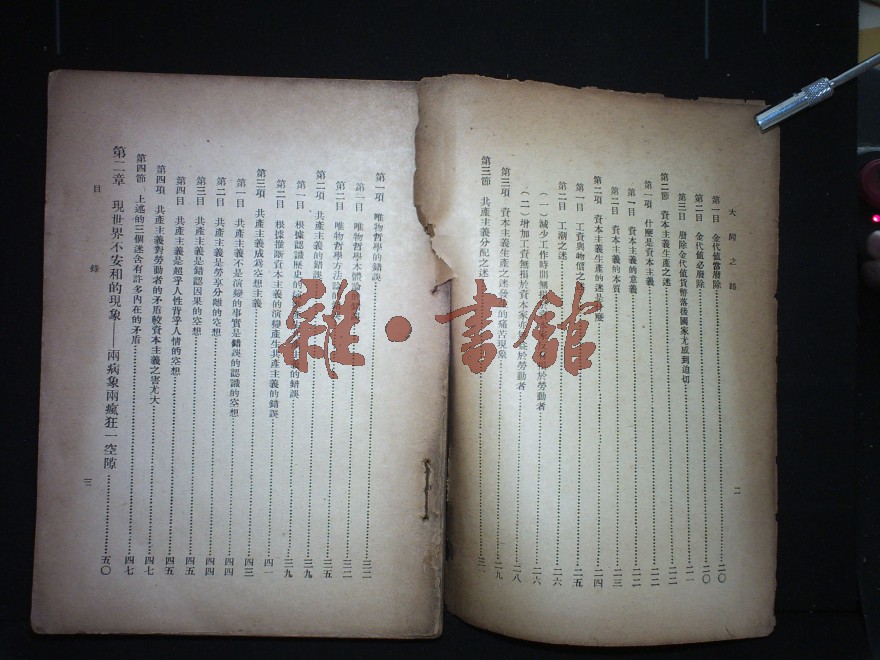 大同之路
二
第一目 金代值當廢除 二〇
第二目 金代值必廢除 二〇
第三目 廢除金代值貨幣落後國家尤感到迫切 二一
第二節 資本主義生產之迷 二二
第一項 什麼是資本主義 二二
第一目 資本主義的意義 二二
第二目 資本主義的本質 二三
第二項 資本主義生產的迷是 二四
第一目 工資與物價之迷 二五
第二目 工潮之迷 二六
(一)減少工作時間無損 於勞動者 二六
(二)增加工資無損於資本家 於勞動者 二八
第三項 資本主義生產之迷發 的痛苦現象 二九
第三節 共產主義分配之迷 三一
第一項 唯物哲學的錯誤 三二
第一目 唯物哲學本體論 三二
第二目 唯物哲學方法 三五
第二項 共產主義的錯誤 三九
第一目 根據認識歷史的 主義的錯誤 三九
第二目 根據推斷資本主義的演變產生共產主義的錯誤 四一
第三項 共產主義成為空想主義 四三
第一目 共產主義不是演變的事實是錯誤的認識的空想 四四
第二目 共產主義是勞享分離的空想 四四
第三目 共產主義是錯認因果的空想 四五
第四目 共產主義是超乎人性背乎人情的空想 四五
第四項 共產主義對勞動者的矛盾較資本主義之害尤大 四七
第四節 上述的三個迷含有許多內在的矛盾 四七
第二章 現世界不安和的現象——兩病象兩瘋狂一空隙 五〇
目錄
三
雜·書館